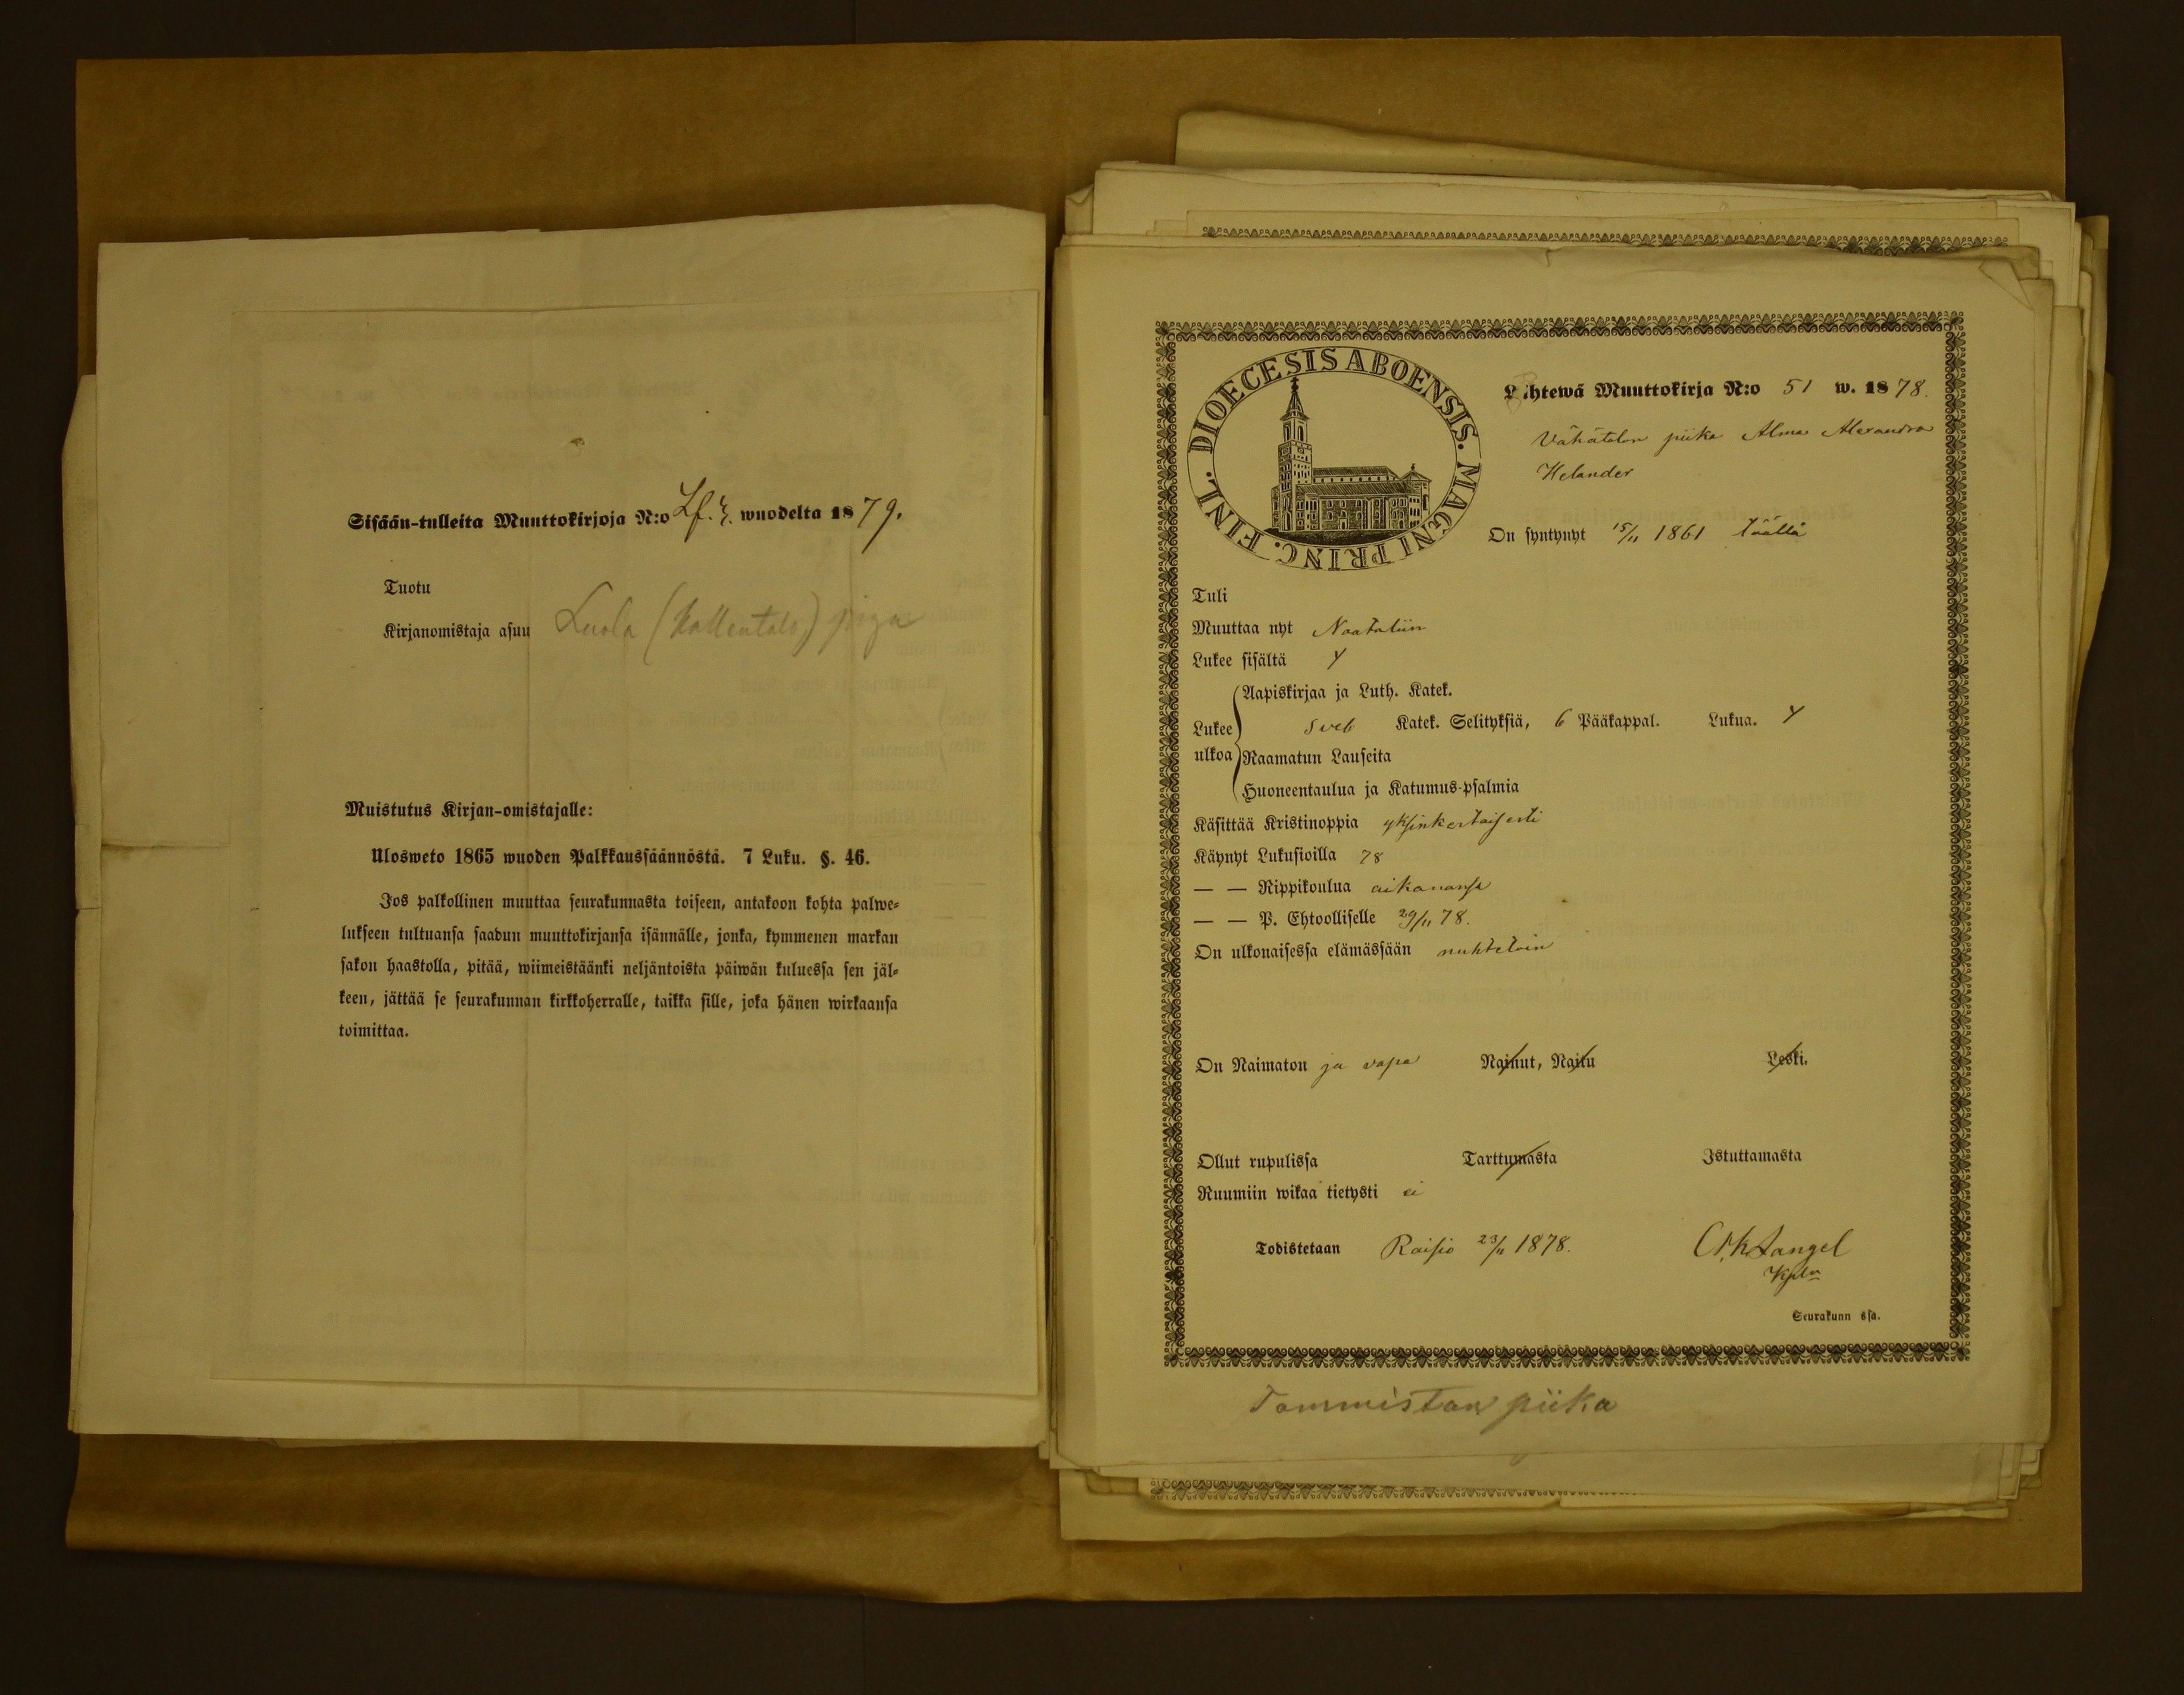 Sisään-tulleita Muuttokirjoja N:o Lf. 4. wuodelta 1879.
Tuotu
Kirjanomistaja asuu Luola (Kallentalo) piga
Muistutus Kirjan-omistajalle:
Ulosweto 1865 wuoden Palkkaussäännöstä. 7 Luku. §. 46.
Jos palkollinen muuttaa seurakunnasta toiseen, antakoon kohta palwe-
lukseen tultuansa saadun muuttokirjansa isännälle, jonka, kymmenen markan
sakon haastolla, pitää, wiimeistäänki neljäntoista päiwän kuluessa sen jäl-
keen, jättää se seurakunnan kirkkoherralle, taikka sille, joka hänen wirkaansa
toimittaa.
DIOECESIS ABOENSIS. MAGNI PRINC. FINL.
Lähtewä Muuttokirja N:o 51 w. 1878.
Vähätalon piika Alma Alexandra
Helander
On syntynyt 15/11 1861 täällä
Tuli
Muuttaa nyt Naataliin
Lukee sisältä y
Lukee ulkoa
Aapiskirjaa ja Luth. Katek.
Sveb Katek. Selityksiä, 6 Pääkappal. Lukua. y
Raamatun Lauseita
Huoneentaulua ja Katumus-psalmia
Käsittää Kristinoppia yksinkertaisesti
Käynyt Lukusioilla 78
— — Rippikoulua aikanansa
— — P. Ehtoolliselle 29/11 78.
On ulkonaisessa elämässään nuhtetoin
On Naimaton ja vapa Nainut, Naitu Leski.
Ollut rupulissa Tarttumasta Istuttamasta
Ruumiin wikaa tietysti ei
Todistetaan Raisio 23/11 1878.
Kpln
Seurakunn ssa.
Tammistan piika